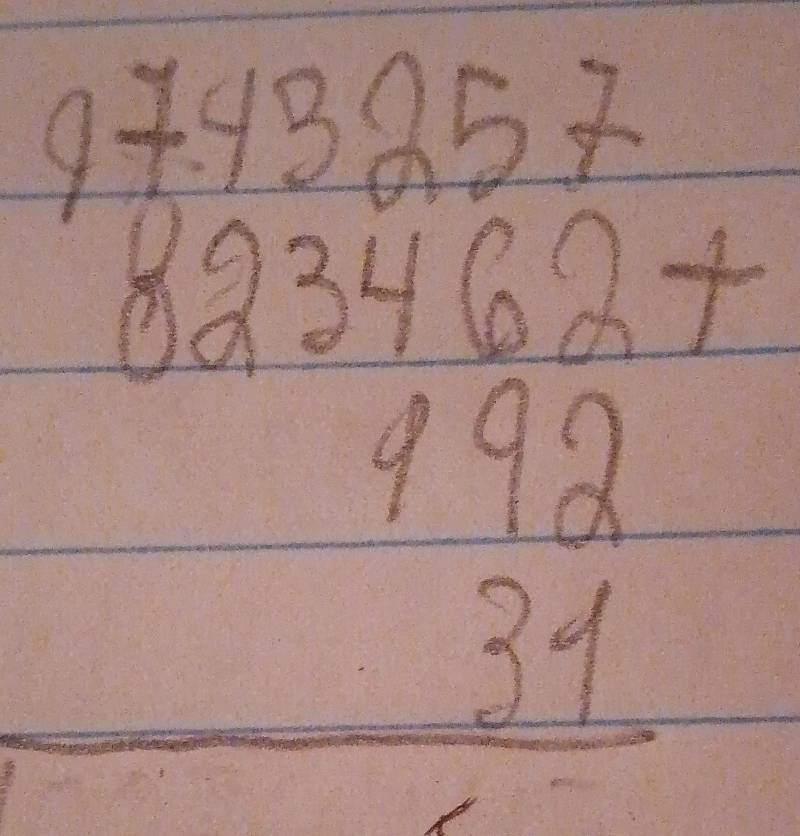 9743257
823462+
192
31